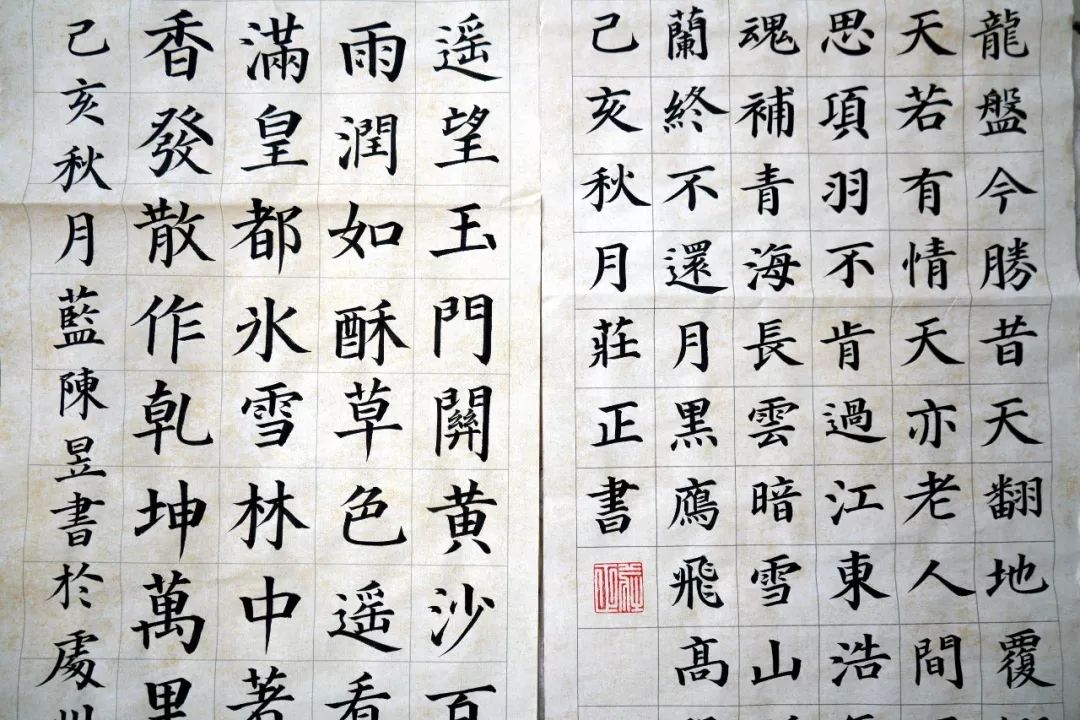 龍盤今勝昔天翻地覆
天若有情天亦老人間
思項羽不肯過江東浩
魂補青海長雲暗雪山
蘭終不還月黑鴈飛高
己亥秋月莊正書
遥望玉門關黄沙百
雨潤如酥草色遥看
滿皇都氷雪林中著
香發散作乹坤萬里
己亥秋月藍陳昱書於處州